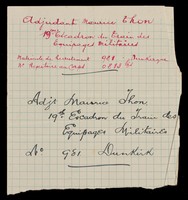 Adjudant Maurice Thon
19e Escadron du Train des
Equipages Militaires
Matricule du Recrutement 981 Dunkerque
Adjt Maurice Thon
19th Escadron du Train des
Equipages Militaires
No 981 Dunkirk